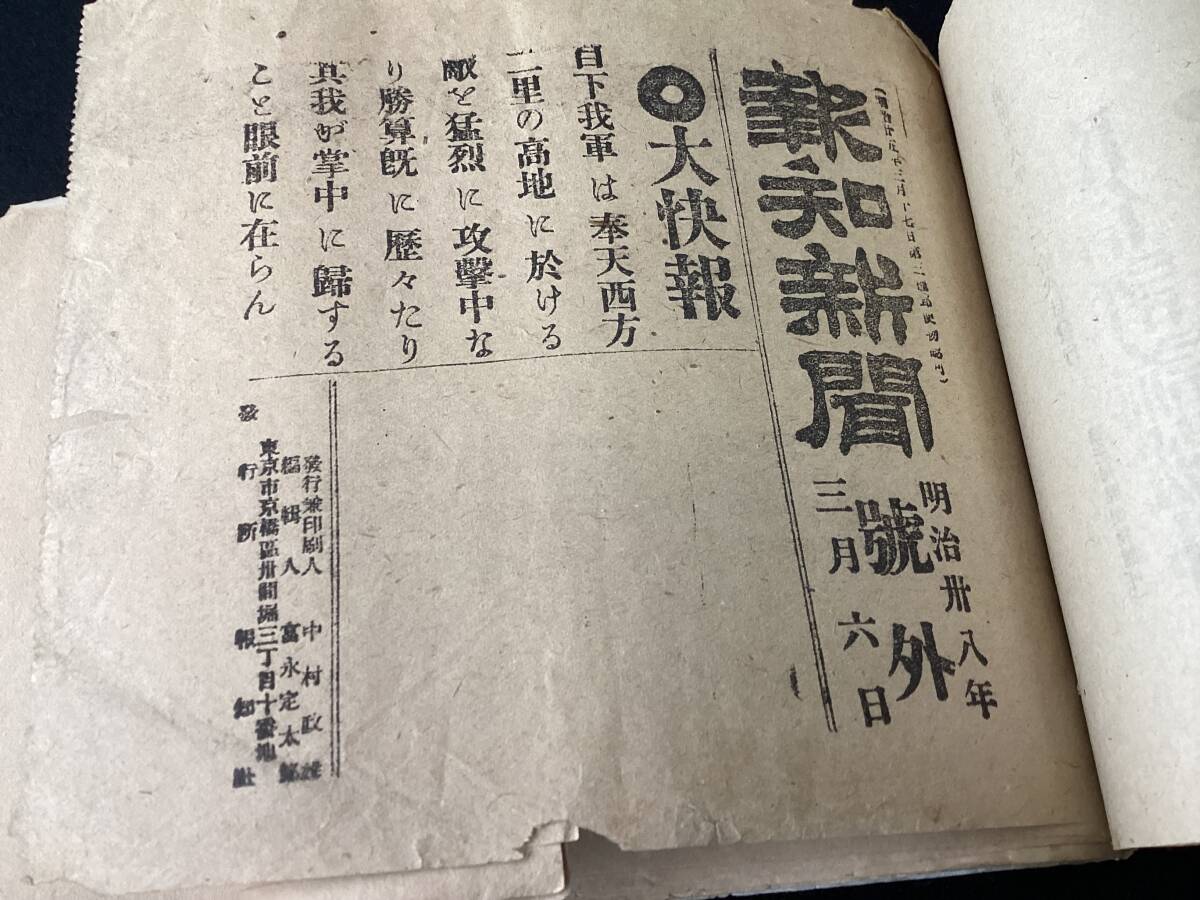 報知新聞
明治卅八年
號外
三月六日
◎大快報
目下我軍は奉天西方
二里の高地に於ける
敵を猛烈に攻擊中な
り勝算旣に歷々たり
其我が掌中に歸する
こと眼前に在らん
發行兼印刷人 中村政雄
編輯人 富永定太郞
東京市京橋區三丁目十番地
發行所 報知社